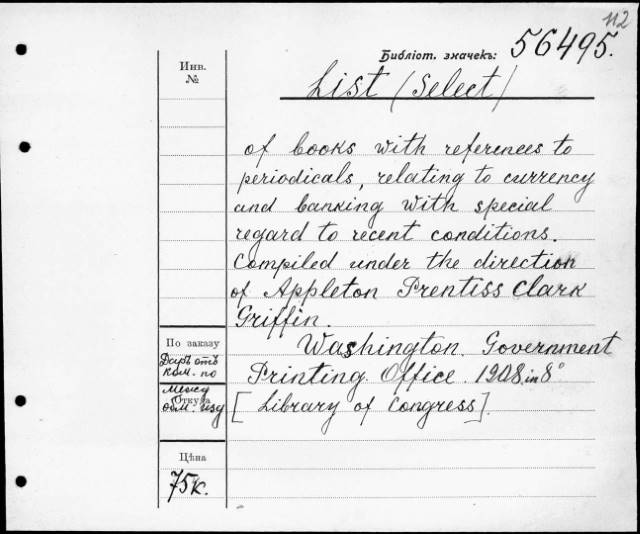 112
Библіот. значекъ: 56495.
Инв.
№
List (Select)
of books with references to
periodicals, relating to currency
and banking with special
regard to recent conditions.
Compiled under the direction
of Appleton Prentiss Clark
Griffin.
Washington. Government
Printing Office 1908. in 8°
[Library of Congress].
По заказу
Даръ отъ
ком. по
Откуда
межд
обм. изд
Цѣна
75к.